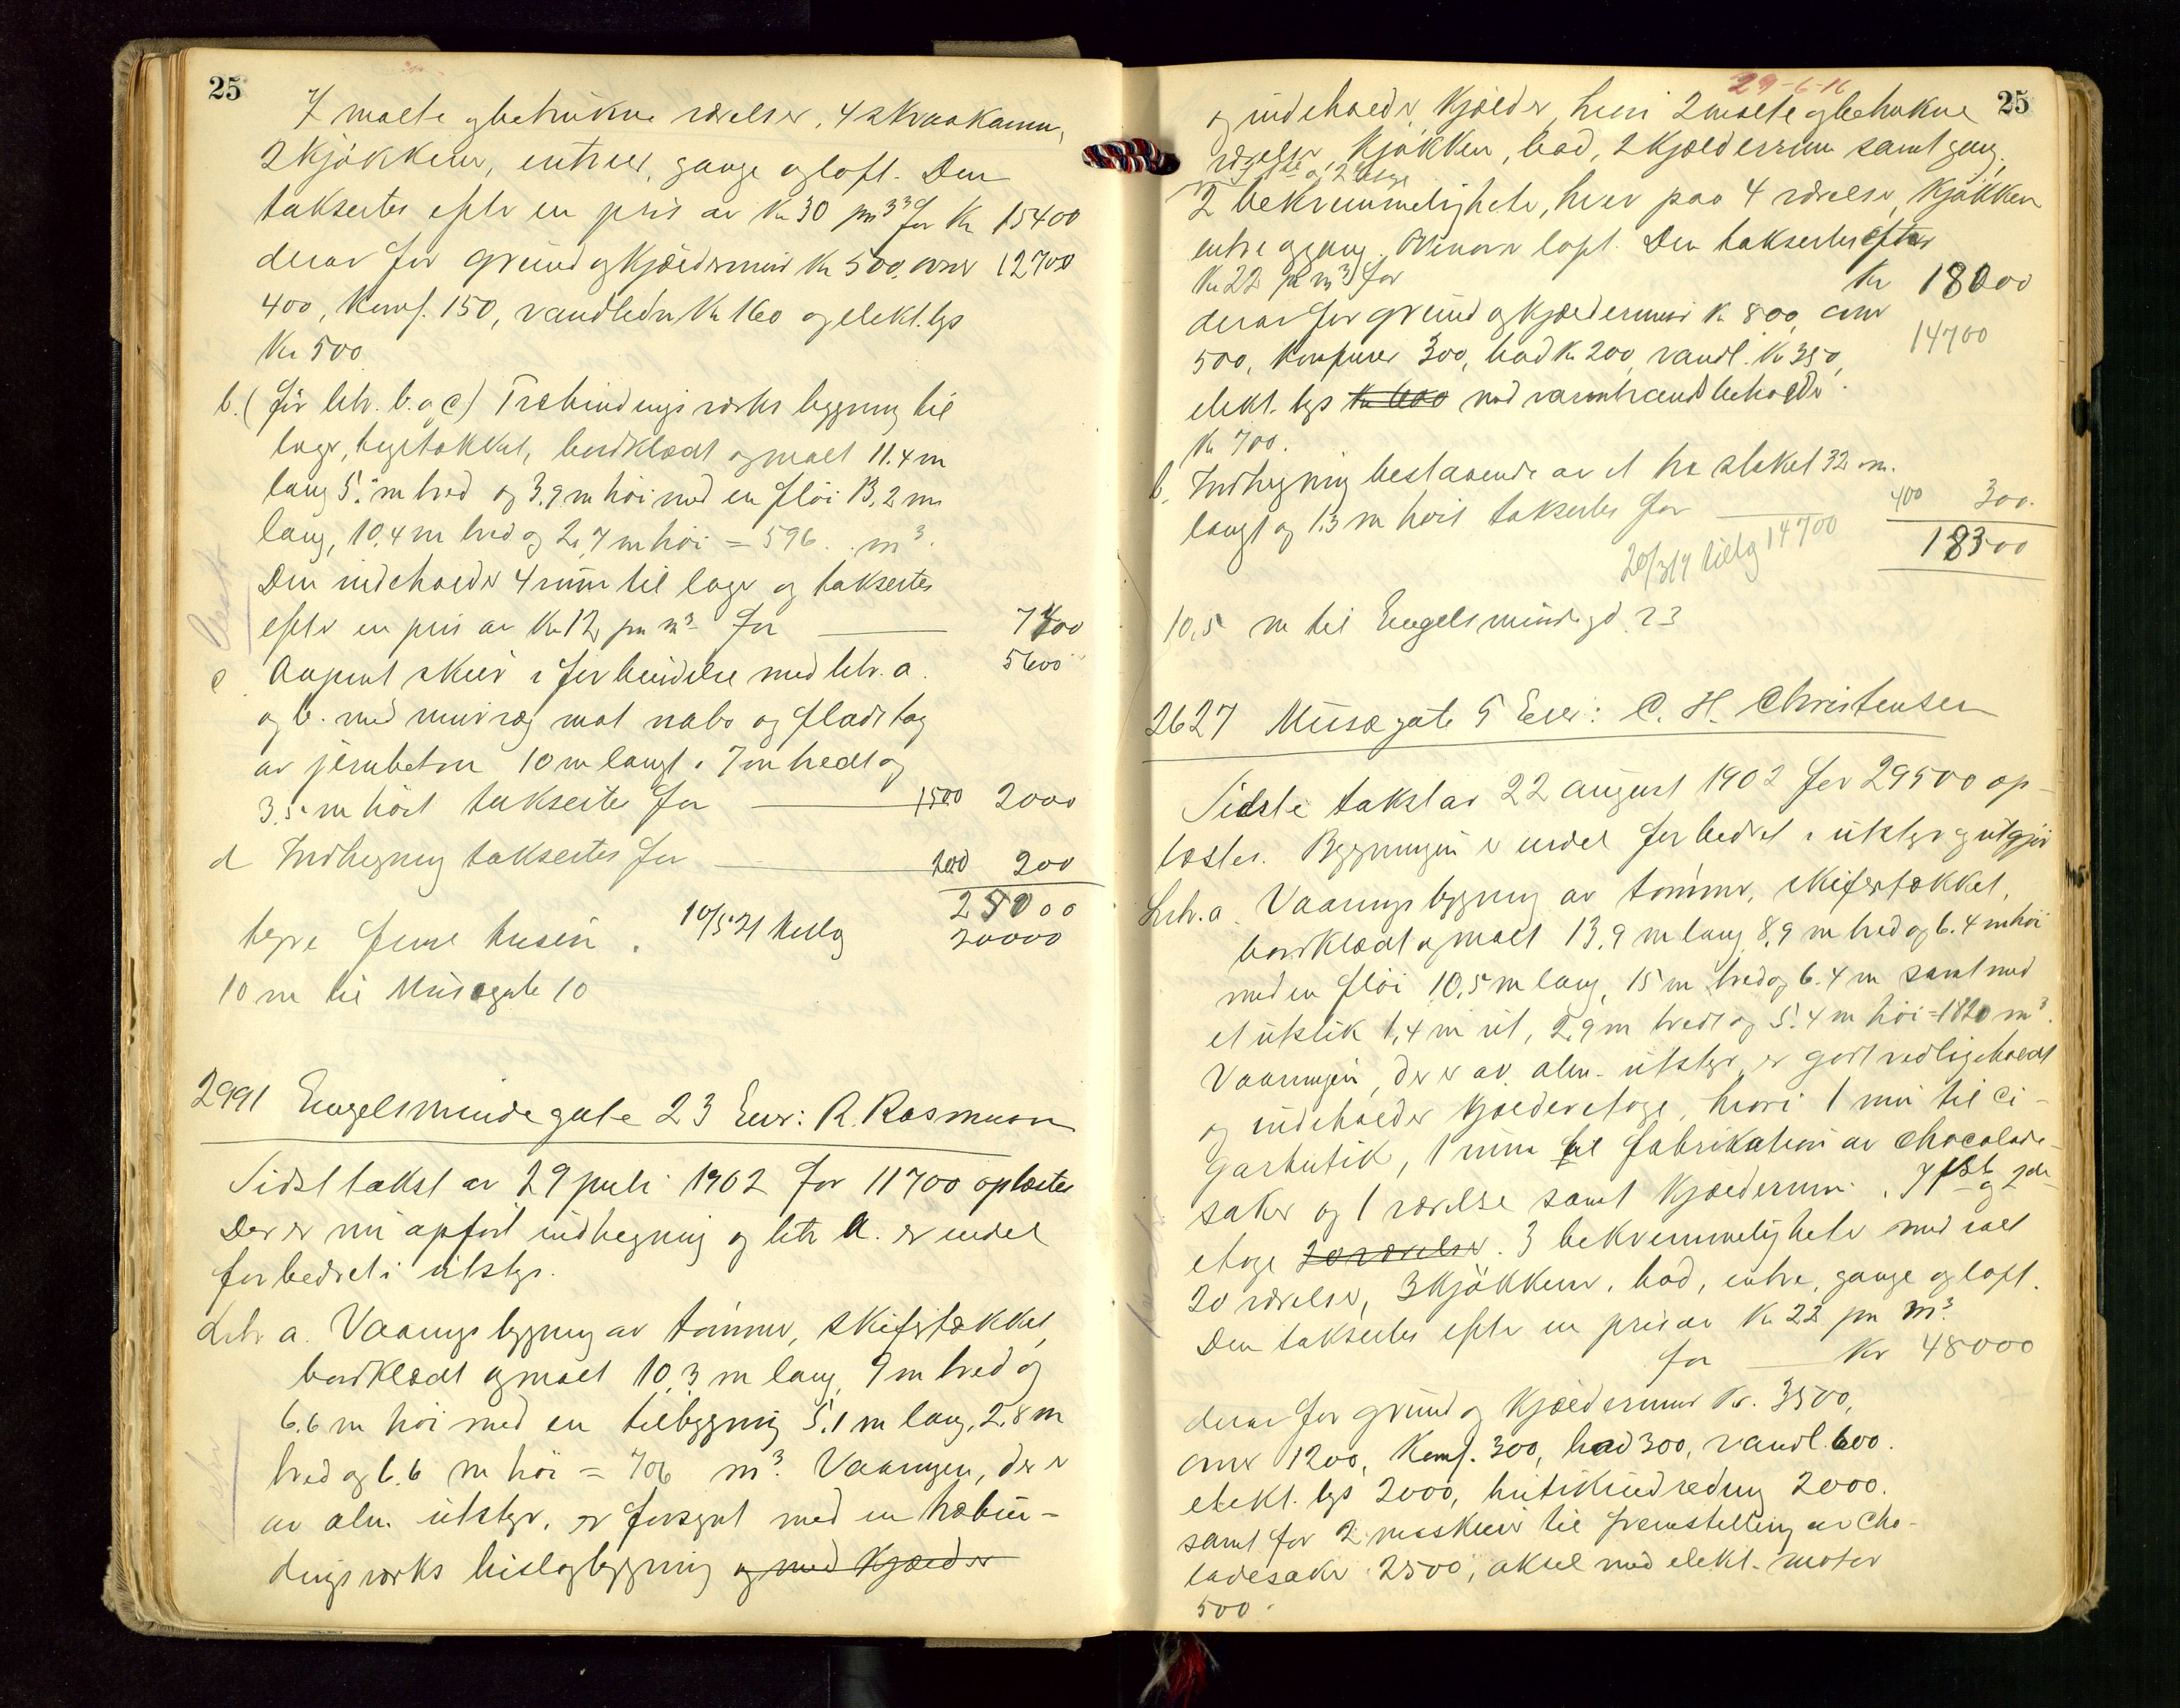 25
7 malte og betrukne værelser, 4 skraakamm,
2 kjøkkener, entreer, gange og loft. Den
takseres efter en pris av Kr 30 pr m³ for Kr 15400
derav for grund og kjældermur Kr 500, ovner 12700
400, Komf. 150, vandledn Kr 160 og elekt. lys
Kr 500
b. (før litr. b. og c) Træbindingsverks bygning til
lager, tegltækket, bordklædt og malt 11.4 m
lang 5. m bred og 3,9 m høi med en fløi 13,2 m
lang, 10,4 m bred og 2,7 m høi = 596 m³.
Den indeholder 4 rum til lager og takseres
efter en pris av Kr 12 pr m³ for 7400
5600
c. Aapent skur i forbindelse med litr. a.
og b. med murvæg mot nabo og fladt tag
av jernbeton 10 m langt, 7 m bredt og
3,5 m høit takseres for 1500 2000
d Indhegning takseres for 200 200
25000
10/5 21 20000
10 m til Musegate 10
2991 Engelsmindegate 23 Eier: R. Rasmussen
Sidst takst av 29 juli 1902 for 11700 oplæstes
Der er nu opført indhegning og litr a. er endel
forbedret i utstyr.
Litr a. Vaaningsbygning av tømmer, skifertækket,
bordklædt og malt 10,3 m lang, 9 m bred og
6.6 m høi med en tilbygning 5.1 m lang, 2.8 m
bred og 6.6 m høi = 706 m³. Vaaningen, der er
av alm. utstyr, er forsynt med en træbin-
dingsverks bislagbygning og med Kjælder
29-6-16
25
og indeholder Kjælder, hvori 2 malte og betrukne
værelser, Kjøkken, bad, 2 kjælderrum samt gang.
I 1ste og 2 etage
2 bekvemmeligheter, hver paa 4 værelser, Kjøkken
entre og gang. Ovenover loft. Den takseres efter
Kr 22 pr m³ for Kr 18000
derav for grund og kjældermur Kr 800, ovner
14700
500, komfurer 300, bad Kr 200, vandl. Kr 350,
elekt. lys Kr 600 med varmtvandsbeholder
Kr 700.
b. Indhegning bestaaende av et træ stakit 32 m.
langt og 1.3 m høit takseres for 400 300.
18300
20/3 19 14700
10,5 m til Engelsmindegd. 23
2627 Musegate 5 Eier: C. H. Christensen
Sidste takst av 22 august 1902 for 29500 op-
læstes. Bygningen er endel forbedret i utstyr og utgjør
Litr. a. Vaaningsbygning av tømmer, skifertækket,
bordklædt og malt 13,9 m lang 8,9 m bred og 6.4 m høi
med en fløi 10,5 m lang, 15 m bred og 6.4 m samt med
et utstik 1,4 m ut, 2,9 m bredt og 5.4 m høi = 1820 m³.
Vaaningen, der er av alm. utstyr, er godt vedligeholdt
og indeholder kjælderetage, hvori 1 rum til ci-
garbutik, 1 rum til fabrikation av chocolade-
saker og 1 værelse samt kjælderrum. I 1ste og 2den
etage 20 værelser. 3 bekvemmeligheter med ialt
20 værelser, 3 Kjøkkener, bad, entre, gange og loft.
Den takseres efter en pris av Kr 22 pr m³
for Kr 48000
derav for grund og Kjældermur Kr. 3500,
ovner 1200, Komf. 300, bad 300, vandl. 600.
elekt. lys 2000, butikindredning 2000.
samt for 2 maskiner til fremstilling av cho-
ladesaker 2500, aksel med elekt. motor
500.